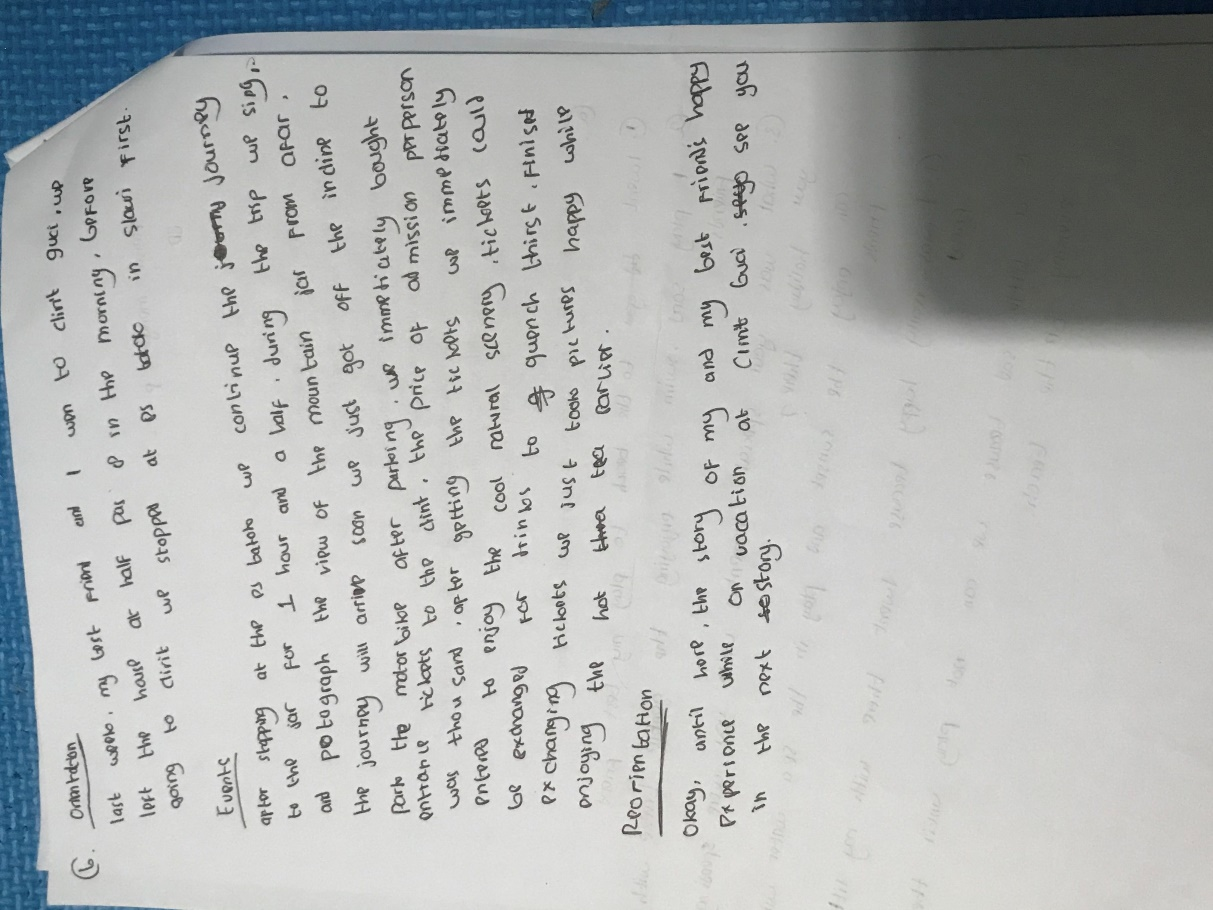 6. Orientation
last week, my best Friend and I wen to clirit guci, we
left the house at half pas 8 in the morning, before
going to clirit we stopped at es batok in slawi first.
Events
after stopping at the es batok we continue the journey
to the jar for 1 hour and a half. during the trip we sing,
and potograph the view of the mountain jar from afar.
the journey will arrive soon we just got off the incline to
park the motorbike after parking, we immedicately bought
entrance tickets to the clirit, the price of admission perperson
was thousand, after getting the tickets we immediately
entered to enjoy the cool natural scenery, tickets could
be exchanged for drinks to quench thirst. Finised
exchanging tickets we just took pictures happy while
enjoying the hot tea earlier.
Reorientation
Okay, until here, the story of my and my best Friends happy
experience while on vacation at Clirit Guci. see you
in the next story.